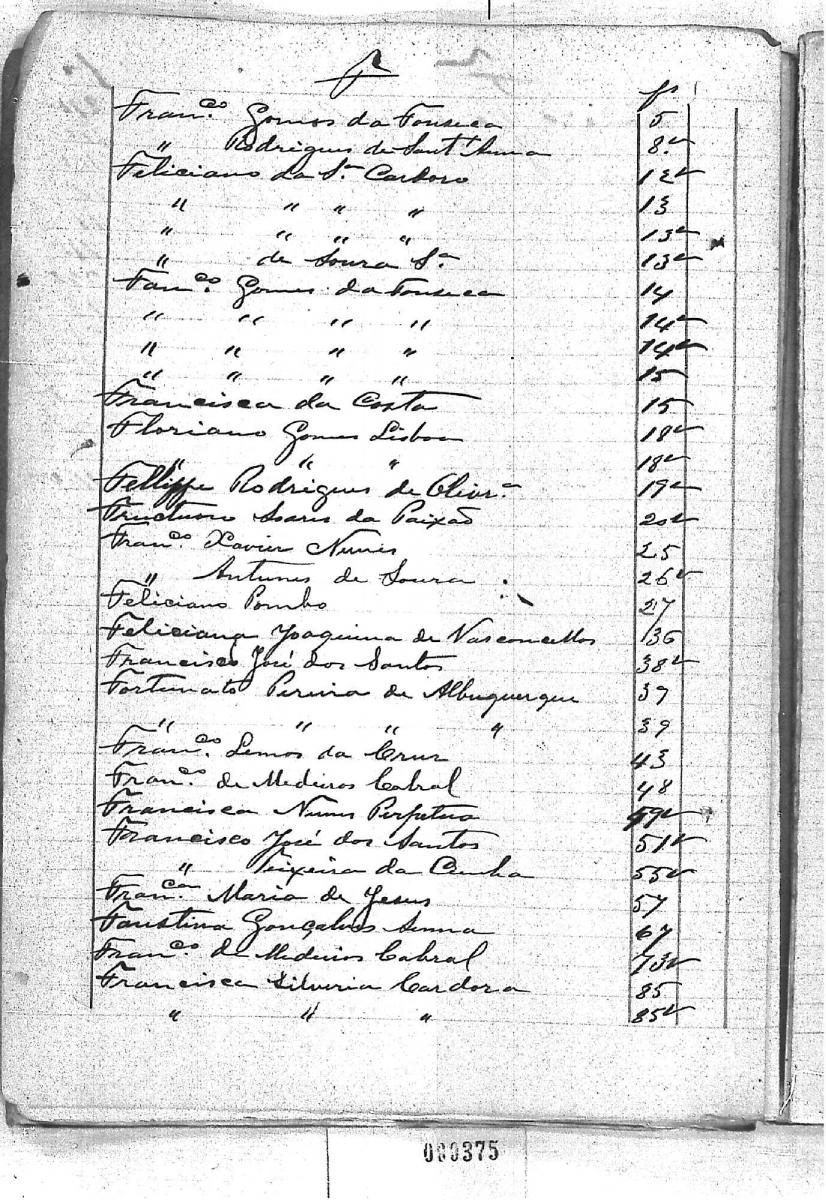 F
fs
Franco. Gomes da Fonseca 5
" Rodrigues de Sant'Anna 8v
Feliciano da Sa Cardozo 12v
" " " " 13
" " " " 13v
" de Souza Sa 13v
Fanco. Gomes da Fonseca 14
" " " " 14v
" " " " 14v
" " " " 15
Francisca da Costa 15
Floriano Gomes Lisboa 18v
" " " 18v
Fellippe Rodrigues de Olivra 19v
Fructuoso Soares da Paixão 20v
Franco. Xavier Nunes 25
" Antunes de Souza 26v
Feliciano Pombo 27
Feliciana Joaquina de Vasconcellos 136
Francisco José dos Santos 38v
Fortunato Pereira de Albuquerque 39
" " " " 39
Franco. Lemos da Cruz 43
Franco. de Medeiros Cabral 48
Francisca Nunes Perpetua 49v
Francisco José dos Santos 51v
" Teixeira da Cunha 55v
Franca. Maria de Jesus 57
Faustina Gonçalves Anna 67
Franco. de Medeiros Cabral 73v
Francisca Silveria Cardoza 85
" " " 85v
000375